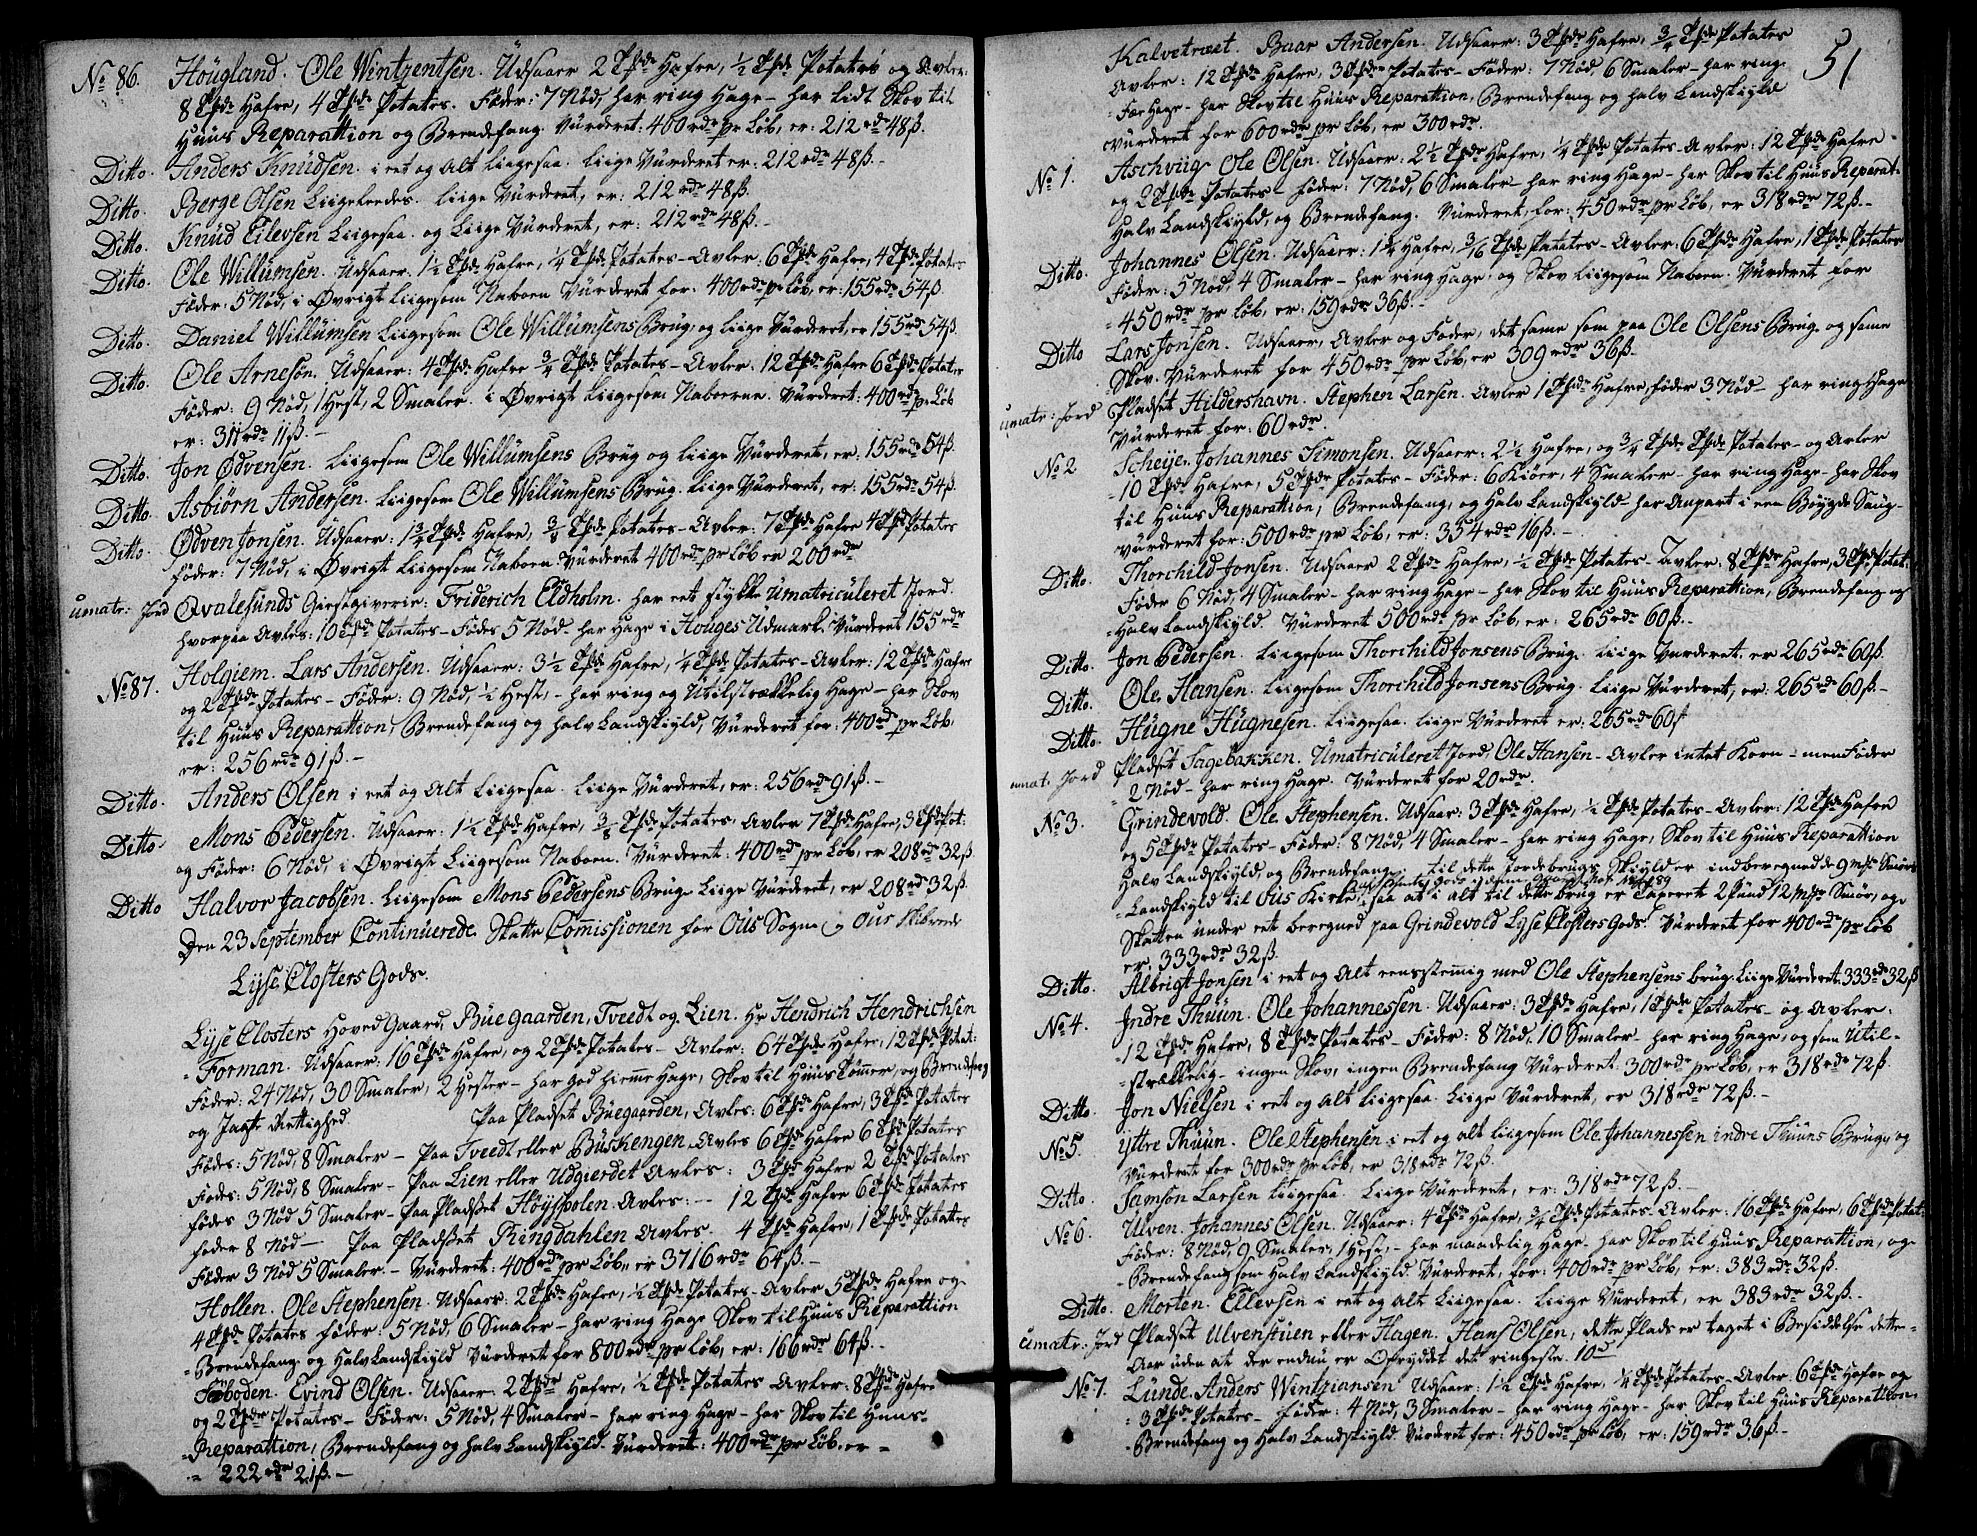 No 86. Høugland. Ole Wintzentsen. Udsaaer 2 Tdr Hafre, 1/2 Tde Potates og Avler:
8 Tdr Hafre, 4 Tdr Potates. Føder: 7 Nød, har ring Hage - har lidt Skov til
Huus Reparattion og Brendefang. Vurderet: 400 rdr pr Løb, er: 212 rdr 48 ß.
Ditto. Anders Knudsen. i eet og Alt liigesaa. liige Vurderet er: 212 rdr 48 ß. -
Ditto. Berge Olsen Liigeleedes. liige Vurderet, er: 212 rdr 48 ß.
Ditto. Knud Eilevsen Liigesaa. og Liige Vurderet, er: 212 rdr 48 ß. -
Ditto. Ole Willumsen. Udsaaer: 1 1/2 Tde Hafre, 1/4 Tde Potates - Avler: 6 Tdr Hafre, 4 Tdr Potates
Føder: 5 Nød, i Øvrigt Liigesom Naboen Vurderet for: 400 rdr pr Løb, er: 155 rdr 54 ß
Ditto. Daniel Willumsen Liigesom Ole Willumsens Brug, og liige Vurderet, er 155 rdr 54 ß.
Ditto. Ole Arnesøn. Udsaaer: 4 Tdr Hafre 3/4 Tde Potates - Avler: 12 Tdr Hafre 6 Tdr Potates
Føder: 9 Nød, 1 Hest, 2 Smaler. i Øvrigt Liigesom Naboerne. Vurderet: 400 rdr pr Løb
er: 311 rdr 11 ß. -
Ditto. Jon Ødvensen. Liigesom Ole Willumsens Brug og liige Vurderet, er: 155 rdr 54 ß.
Ditto. Asbiørn Andersen. Liigesom Ole Willumsens Brug. liige Vurderet, er: 155 rdr 54 ß.
Ditto. Ødven Jonsen. Udsaaer: 1 3/4 Tde Hafre, 3/8 Tde Potates - Avler: 7 Tdr Hafre 4 Tdr Potates
Føder: 7 Nød, i Øvrigt Liigesom Naboen Vurderet 400 rdr pr Løb er 200 rdr
umatr: Jord Qvalesunds Giestgiverie: Friderich Eldholm. har eet stykke Umatriculeret Jord.
hvorpaa Avles: 10 Tdr Potates - Fødes 5 Nød - har Hage i Houges Udmark. Vurderet 155 rdr
No 87. Holgiem. Lars Andersen. Udsaaer: 3 1/2 Tdr Hafre, 1/4 Tde Potates - Avler: 12 Tdr Hafre
og 2 Tdr Potates - Føder: 9 Nød, 1/2 Hest, - har ring og Utilstrækkelig Hage - har Skov
til Huus Reparattion, Brendefang og halv Landskyld, Vurderet for: 400 rdr pr Løb,
er: 256 rdr 91 ß. -
Ditto. Anders Olsen i eet og Alt Liigesaa. liige Vurderet, er: 256 rdr 91 ß. -
Ditto. Mons Pedersen. Udsaaer: 1 1/2 Tde Hafre, 3/8 Tde Potates, Avler 7 Tdr Hafre, 3 Tdr Pot:
og Føder: 6 Nød, i Øvrigt Liigesom Naboen. Vurderet: 400 rdr pr Løb, er 208 rdr 32 ß.
Ditto Halvor Jacobsen. Liigesom Mons Pedersens Brug. Liige Vurderet, er 208 rdr 32 ß.
Den 23 September Continuerede Skatte Commissionen for Ous Sogn i Ous Skibrede
Lyse Closters Gods.
Lyse Closters Hoved Gaard, Büegaarden, Tveedt og Lien. Hr Hendrich Hendrichsen
Forman. Udsaaer: 16 Tdr Hafre, og 2 Tdr Potates - Avler: 64 Tdr Hafre, 12 Tdr Potat:
Føder: 24 Nød, 30 Smaler, 2 Hester - har god hiemme Hage, Skov til Huus Tømmer, og Brendefang
og Jagt Rettighed. Paa Pladset Büegaarden, Avles: 6 Tdr Hafre, 3 Tdr Potates
Fødes: 5 Nød, 8 Smaler - Paa Tveedt eller Büskengen, Avles 6 Tdr Hafre 6 Tdr Potates
Fødes: 5 Nød, 8 Smaler - Paa Lien eller Udgierdet Avles: 3 Tdr Hafre 2 Tdr Potates
Fødes 3 Nød 5 Smaler - Paa Pladset Høyspolen Avles: - - 12 Tdr Hafre 6 Tdr Potates
føder 8 Nød - Paa Pladset Ringdahlen Avles. 4 Tdr Hafre, 1 Tde Potates
Føder 3 Nød 5 Smaler. - Vurderet: 400 rdr pr Løb, er 3716 rdr 64 ß. -
Hollen. Ole Stephensen. Udsaaer: 2 Tdr Hafre, 1/2 Tde Potates - Avler 5 Tdr Hafre og
4 Tdr Potates føder: 5 Nød, 6 Smaler - har ring Hage Skov til Huus Reparattion
Brendefang og Halv Landskyld Vurderet for 800 rdr pr Løb, er: 166 rdr 64 ß. -
Søboden. Evind Olsen. Udsaaer: 2 Tdr Hafre, 1/2 Tde Potates - Avler: 8 Tdr Hafre
og 2 Tdr Potates - Føder: 5 Nød, 4 Smaler - har ring Hage - har Skov til Huus-
Reparattion, Brendefang og halv Landskyld. Vurderet: 400 rdr pr Løb, er -
222 rdr 21 ß. -
51
Kalvetræet. Baar Andersen. Udsaaer: 3 Tdr Hafre, 3/4 Tde Potates
Avler: 12 Tdr Hafre, 3 Tdr Potates - Føder: 7 Nød, 6 Smaler - har ring
Fæe Hage - har Skov til Huus Reparattion, Brendefang og halv Landskyld
vurderet for 600 rdr pr Løb, er 300 rdr.
No 1. Aschviig Ole Olsen. Udsaaer: 2 1/2 Tdr Hafre, 1/4 Tde Potates - Avler: 12 Tdr Hafre
og 2 Tdr Potates - Føder: 7 Nød, 6 Smaler - har ring Hage - har Skov til Huus Reparat:
Halv Landskyld, og Brendefang. Vurderet, for: 450 rdr pr Løb, er 318 rdr 72 ß. -
Ditto. Johannes Olsen. Udsaaer: 1 1/4 Hafre, 3/16 Tde Potates - Avler: 6 Tdr Hafre, 1 Tde Potates
Føder: 5 Nød, 4 Smaler - har ring Hage og Skov Liigesom Naboen. Vurderet for
450 rdr pr Løb, er: 159 rdr 36 ß. -
Ditto Lars Jonsen. Udsaaer, Avler og Føder, det same som paa Ole Olsens Brug og same
Skov. Vurderet for 450 rdr pr Løb, er 309 rdr 36 ß.
umatr: Jord Pladset Hildershavn. Stephen Larsen. Avler 1 Tde Hafre, føder 3 Nød - har ring Hage
Vurderet for: 60 rdr.
No 2. Scheije. Johannes Simonsen. Udsaaer: 2 1/2 Hafre, og 3/4 Tde Potates - og Avler
10 Tdr Hafre, 5 Tdr Potates - Føder: 6 Kiøer, 4 Smaler - har ring Hage - har Skov
til Huus Reparattion, Brendefang, og Halv Landskyld - har Anpart i een Bøygde Saug -
vurderet for: 500 rdr pr Løb, er: 354 rdr 16 ß. -
Ditto. Thorchild Jonsen. Udsaaer 2 Tdr Hafre, 1/2 Tde Potates - Avler: 8 Tdr Hafre, 3 Tdr Potat:
Føder 6 Nød, 4 Smaler - har ring Hage - har Skov til Huus Reparattion, Brendefang og
Halv Landskyld. Vurderet 500 rdr pr Løb, er: 265 rdr 60 ß. -
Ditto. Jon Pedersen. Liigesom Thorchild Jonsens Brug. liige Vurderet. er 265 rdr 60 ß.
Ditto. Ole Hansen. Liigesom Thorchild Jonsens Brug. liige Vurderet, er: 265 rdr 60 ß. -
Ditto. Hugne Hugnesen. Liigesaa. liige Vurderet er: 265 rdr 60 ß
umat: Jord Pladset Sagebakken. Umatriculeret Jord, Ole Hansen - Avler intet Korn - men Føder
2 Nød - har ring Hage. Vurderet for 20 rdr.
No 3. Grindevold. Ole Stephensen. Udsaaer: 3 Tdr Hafre, 1/2 Tde Potates - Avler: 12 Tdr Hafre
og 5 Tdr Potates - Føder: 8 Nød, 4 Smaler - har ring Hage, Skov til Huus Reparattion
Halv Landskyld, og Brendefang. til dette Jordebrugs Skyld er indberegned de 9 mrk Smørs
Landskyld til Ous Kirke, saa at i alt til dette brug er Taxeret 2 Pund 12 mrk Smør, og
Skatten under eet beregned paa Grindevold Lyse Closters Gods. Vurderet for 400 rdr pr Løb
er: 333 rdr 32 ß.
Ditto. Albrigt Jonsen i eet og Alt eensstemig med Ole Stephensens brug. Liige Vurderet. 333 rdr 32 ß
No 4. Indre Thuun. Ole Johannessen. Udsaaer: 3 Tdr Hafre, 1 Tde Potates - og Avler:
12 Tdr Hafre, 8 Tdr Potates - Føder: 8 Nød, 10 Smaler - har ring Hage, og som Util-
strækkelig - ingen Skov, ingen Brendefang Vurderet: 300 rdr pr Løb, er 318 rdr 72 ß.
Ditto. Jon Nielsen i eet og alt Liigesaa. Liige Vurderet, er 318 rdr 72 ß. -
No 5. Yttre Thuun. Ole Stephensen. i eet og alt liigesom Ole Johannessen indre Thuuns Brug, og
Vurderet for 300 rdr pr Løb, er 318 rdr 72 ß.
Ditto. Samson Larsen Liigesaa. Liige Vurderet, er: 318 rdr 72 ß. -
No 6. Ulven. Johannes Olsen. Udsaaer: 4 Tdr Hafre, 3/4 Tde Potates. Avler: 16 Tdr Hafre, 6 Tdr Potat:
Føder: 8 Nød, 9 Smaler, 1 Hest, - har maadelig Hage - har Skov til Huus Reparattion, og
Brendefang som Halv Landskyld. Vurderet, for: 400 rdr pr Løb, er: 383 rdr 32 ß.
Ditto. Morten Ellevsen i eet og alt Liigesaa. liige Vurderet, er 383 rdr 32 ß. -
Umatr: Jord Pladset Ulvenstuen eller Hagen. Hans Olsen, dette Plads er taget i Besiddelse dette
Aar uden at der endnu er Opryddet det ringeste. 10 d
No 7. Lunde. Anders Wintziansen Udsaaer: 1 1/2 Tde Hafre, 1/4 Tde Potates - Avler: 6 Tdr Hafre og
3 Tdr Potates - føder: 4 Nød, 3 Smaler - har ring Hage - har Skov til Huus Reparattion,
Brendefang og Halv Landskyld. Vurderet for: 450 rdr pr Løb, er: 159 rdr 36 ß. -